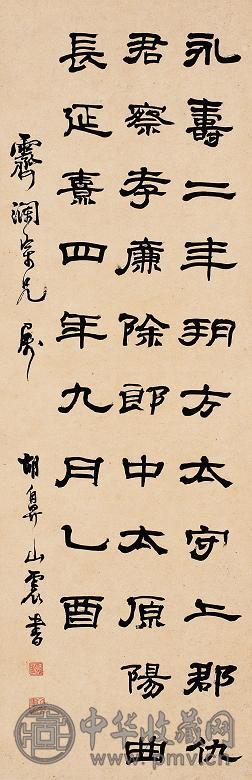 永壽二年朔方太守上郡仇
君察孝廉除郎中太原陽曲
長延熹四年九月乙酉
霽瀾宗兄屬 胡鼻山震書
中华收藏网
www.pmv.cn